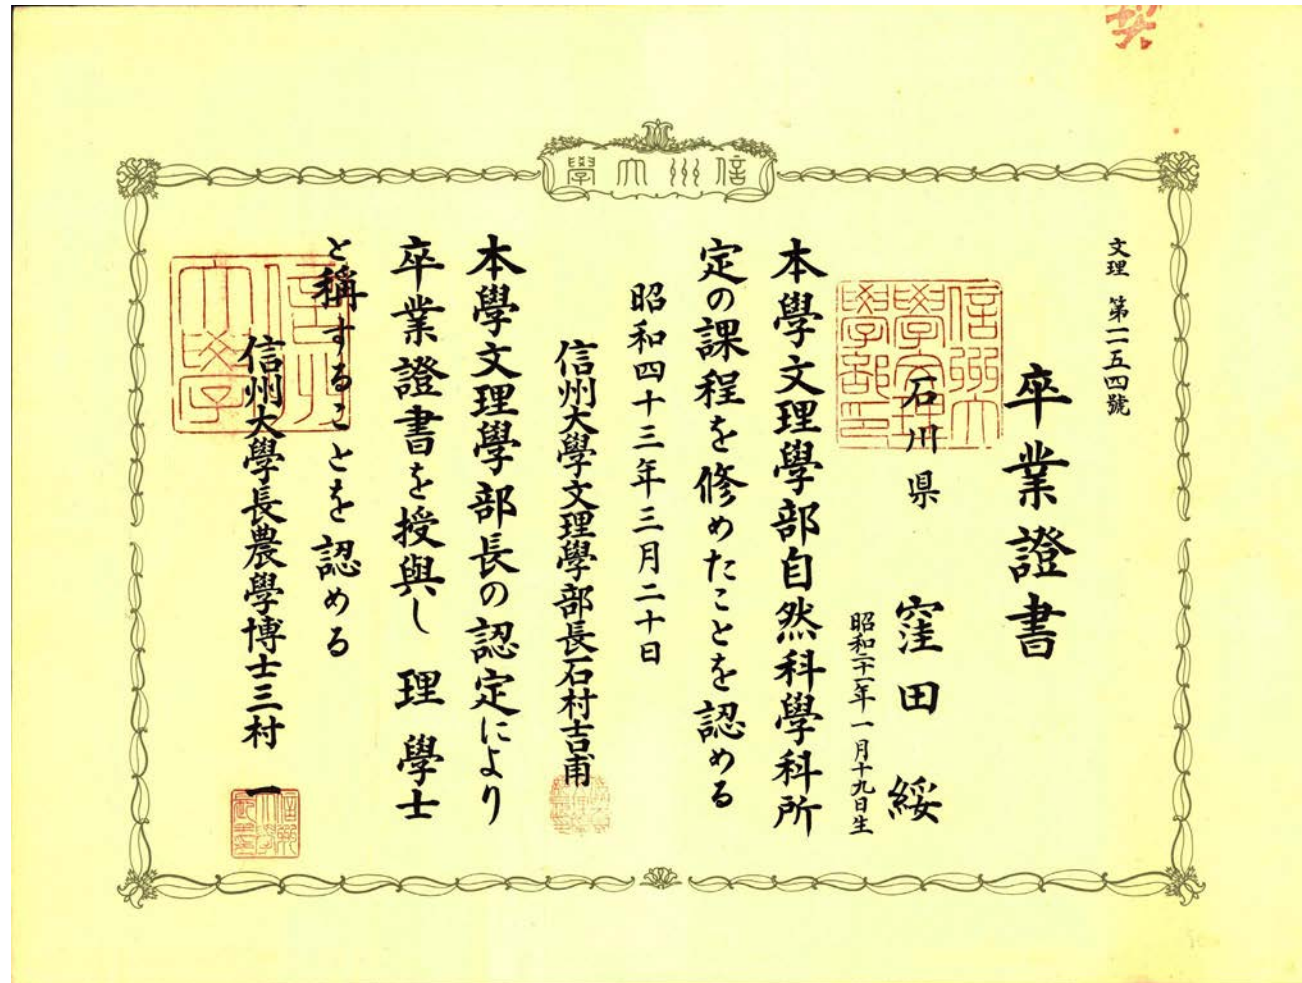 信州大學
文理 第一一五四號
卒業證書
石川県 窪田 綏
昭和二十一年一月十九日生
本學文理學部自然科學科所
定の課程を修めたことを認める
昭和四十三年三月二十日
信州大學文理學部長石村吉甫
本學文理學部長の認定により
卒業證書を授與し 理學士
と稱することを認める
信州大學長農學博士三村 一
信州大
學文理
學部印
信州
大學